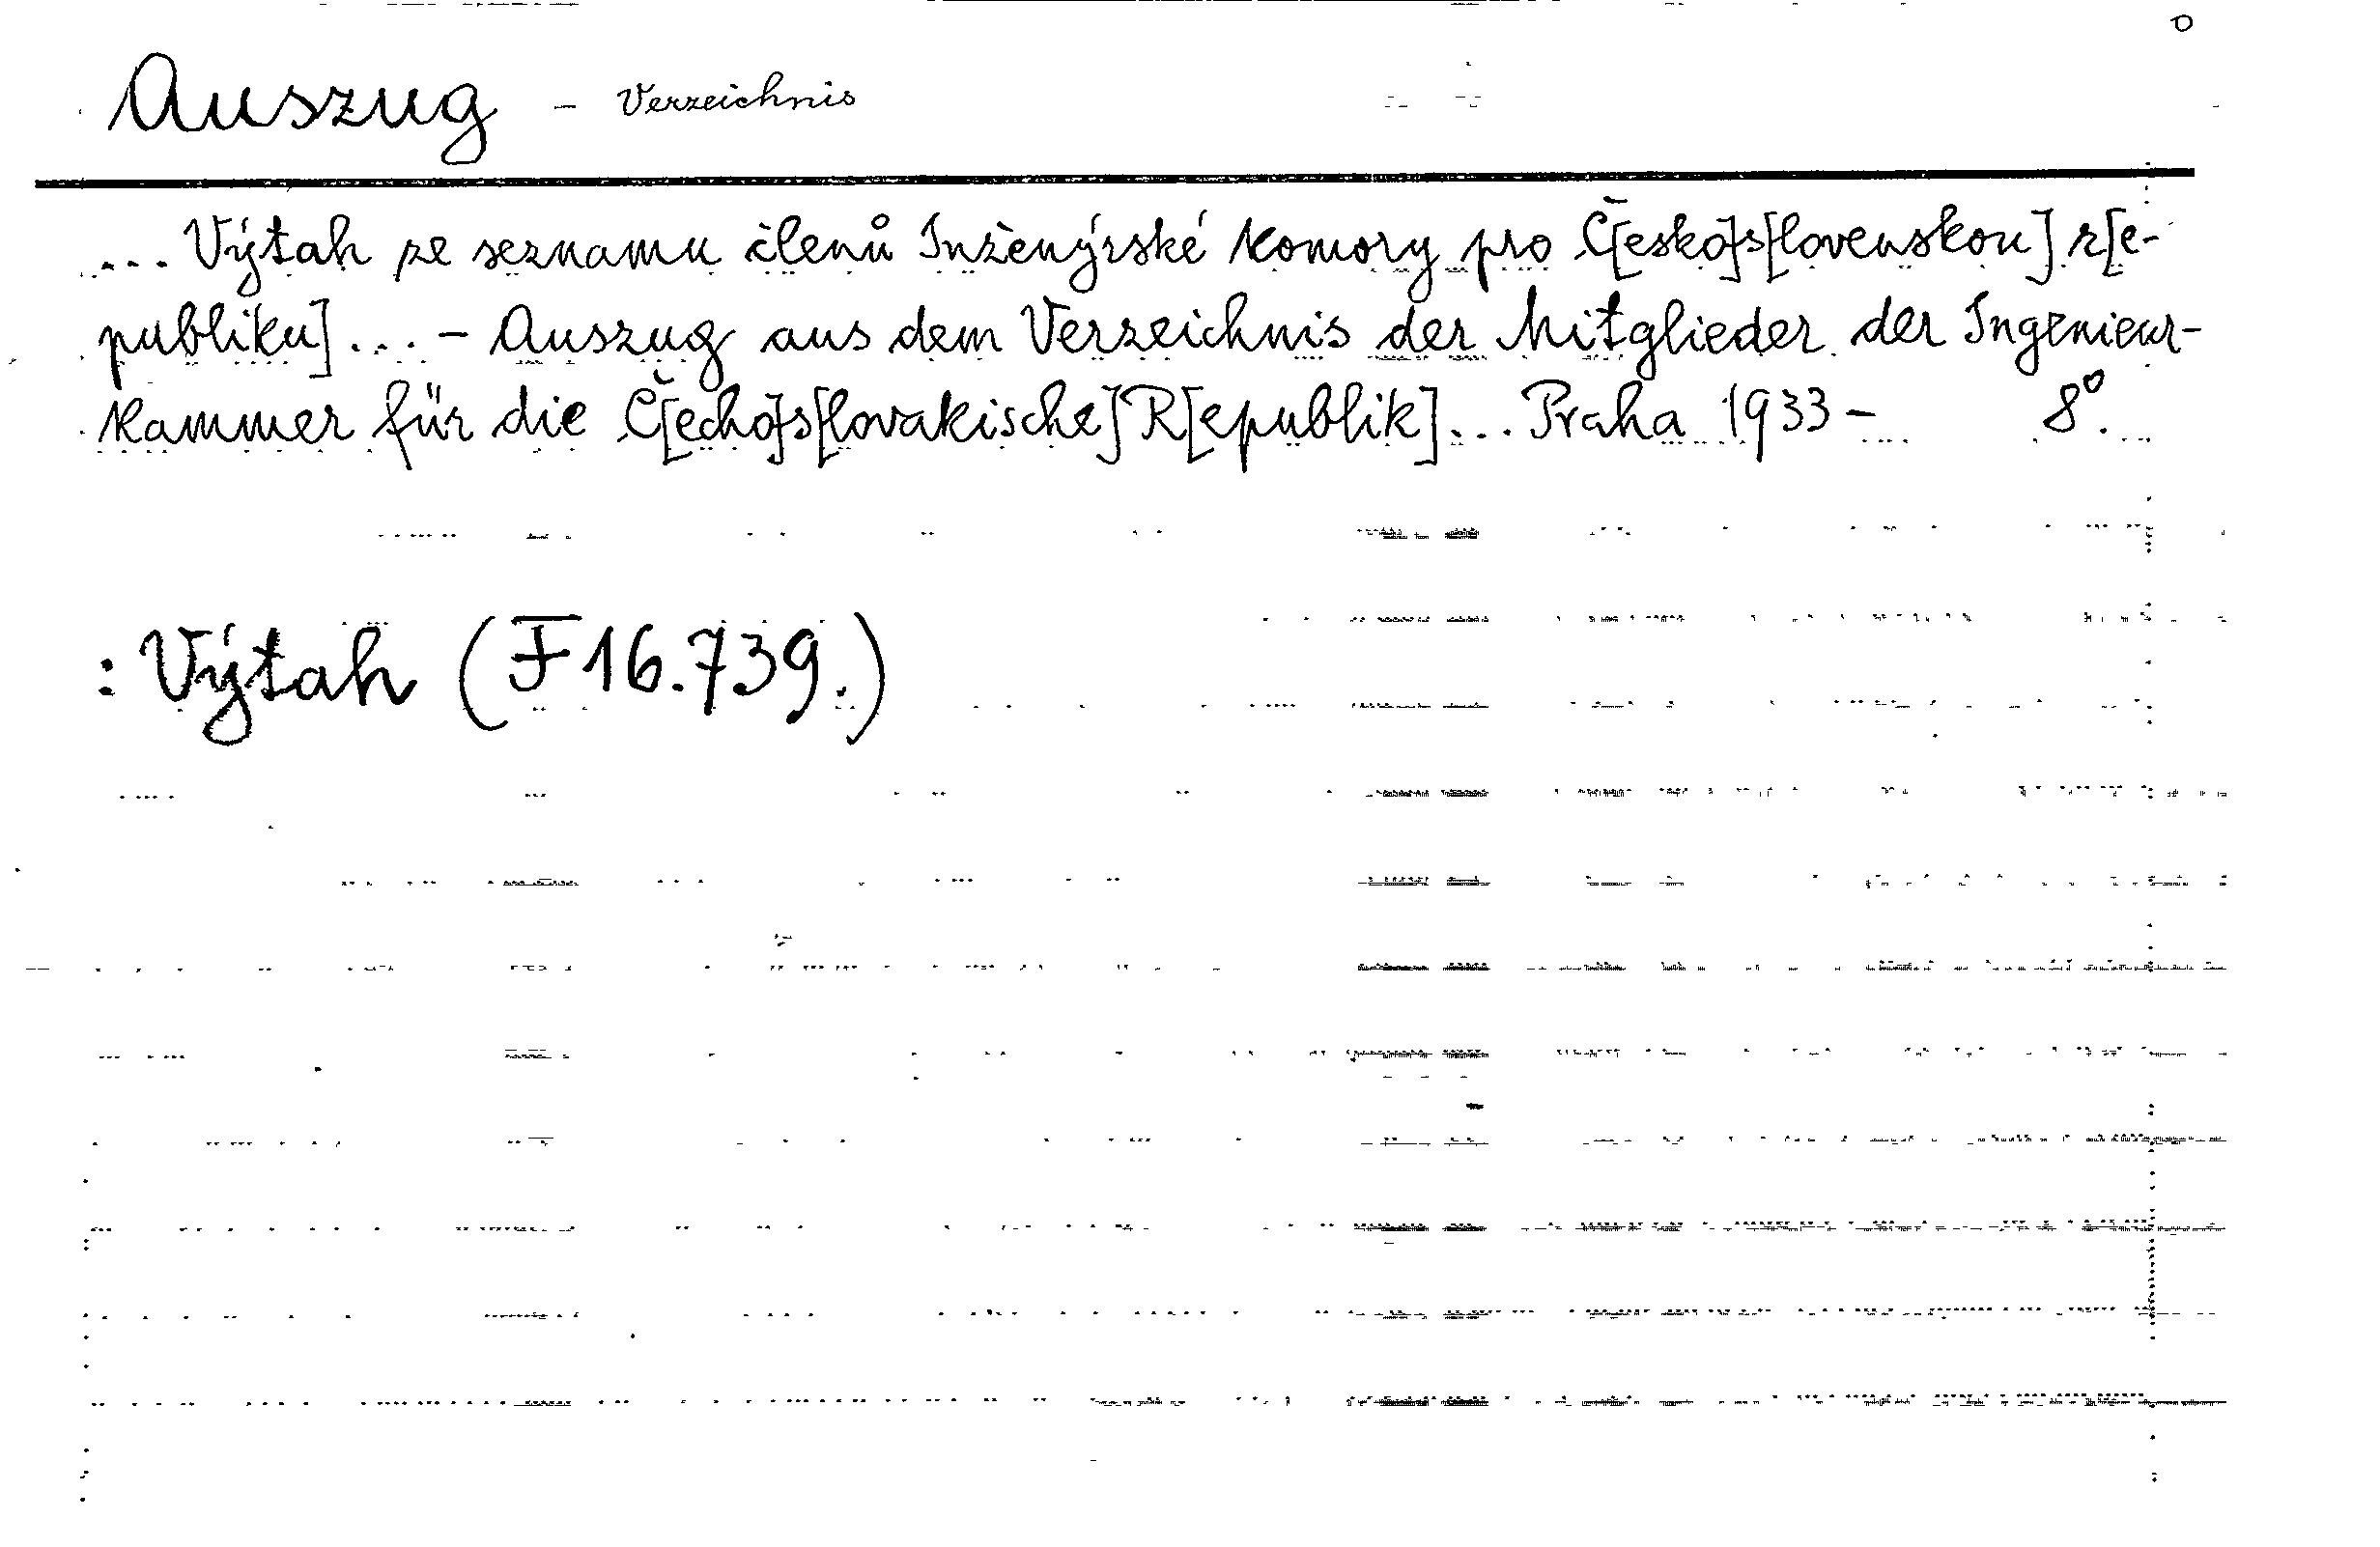 Auszug - Verzeichnis
... Výtah ze seznamu členů Inženýrské komory pro Č[esko]s[lovenskou] r[e-
publiku] ... - Auszug aus dem Verzeichnis der Mitglieder der Ingenieur-
kammer für die Č[echo]s[lovakische] R[epublik] ... Praha 1933 - 8°.
: Výtah (F 16.739.)